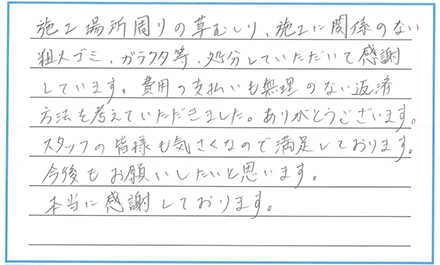 施工場所周りの草むしり、施工に関係のない
粗大ゴミ、ガラクタ等、処分していただいて感謝
しています。費用の支払いも無理のない返済
方法を考えていただきました。ありがとうございます。
スタッフの皆様も気さくなので満足しております。
今後もお願いしたいと思います。
本当に感謝しております。